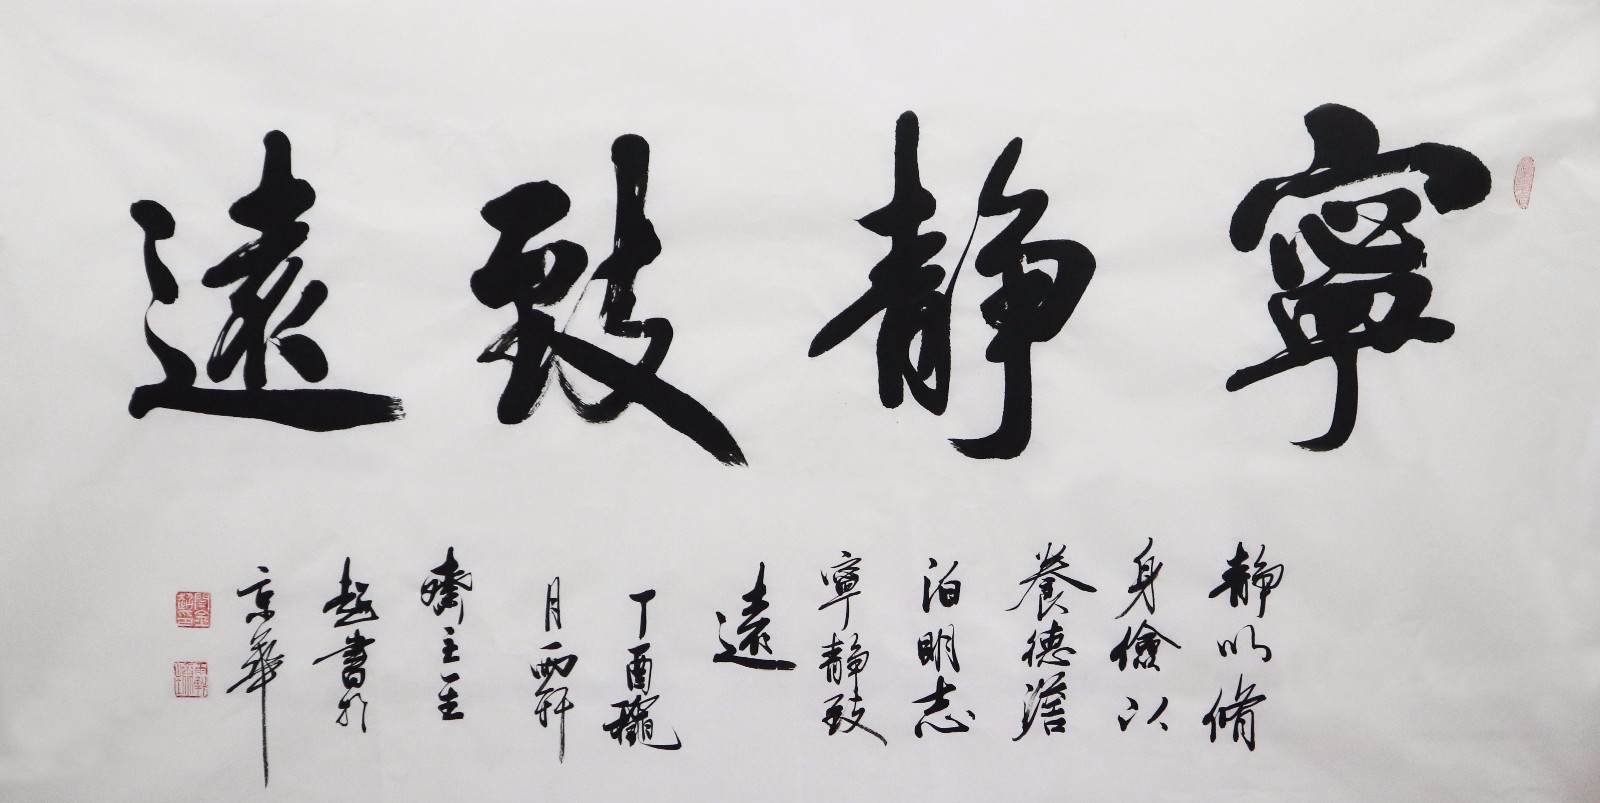 寧靜致遠
静以脩
身儉以
養德澹
泊明志
寧靜致
遠
丁酉龝
月西軒
齋主
書於
京華